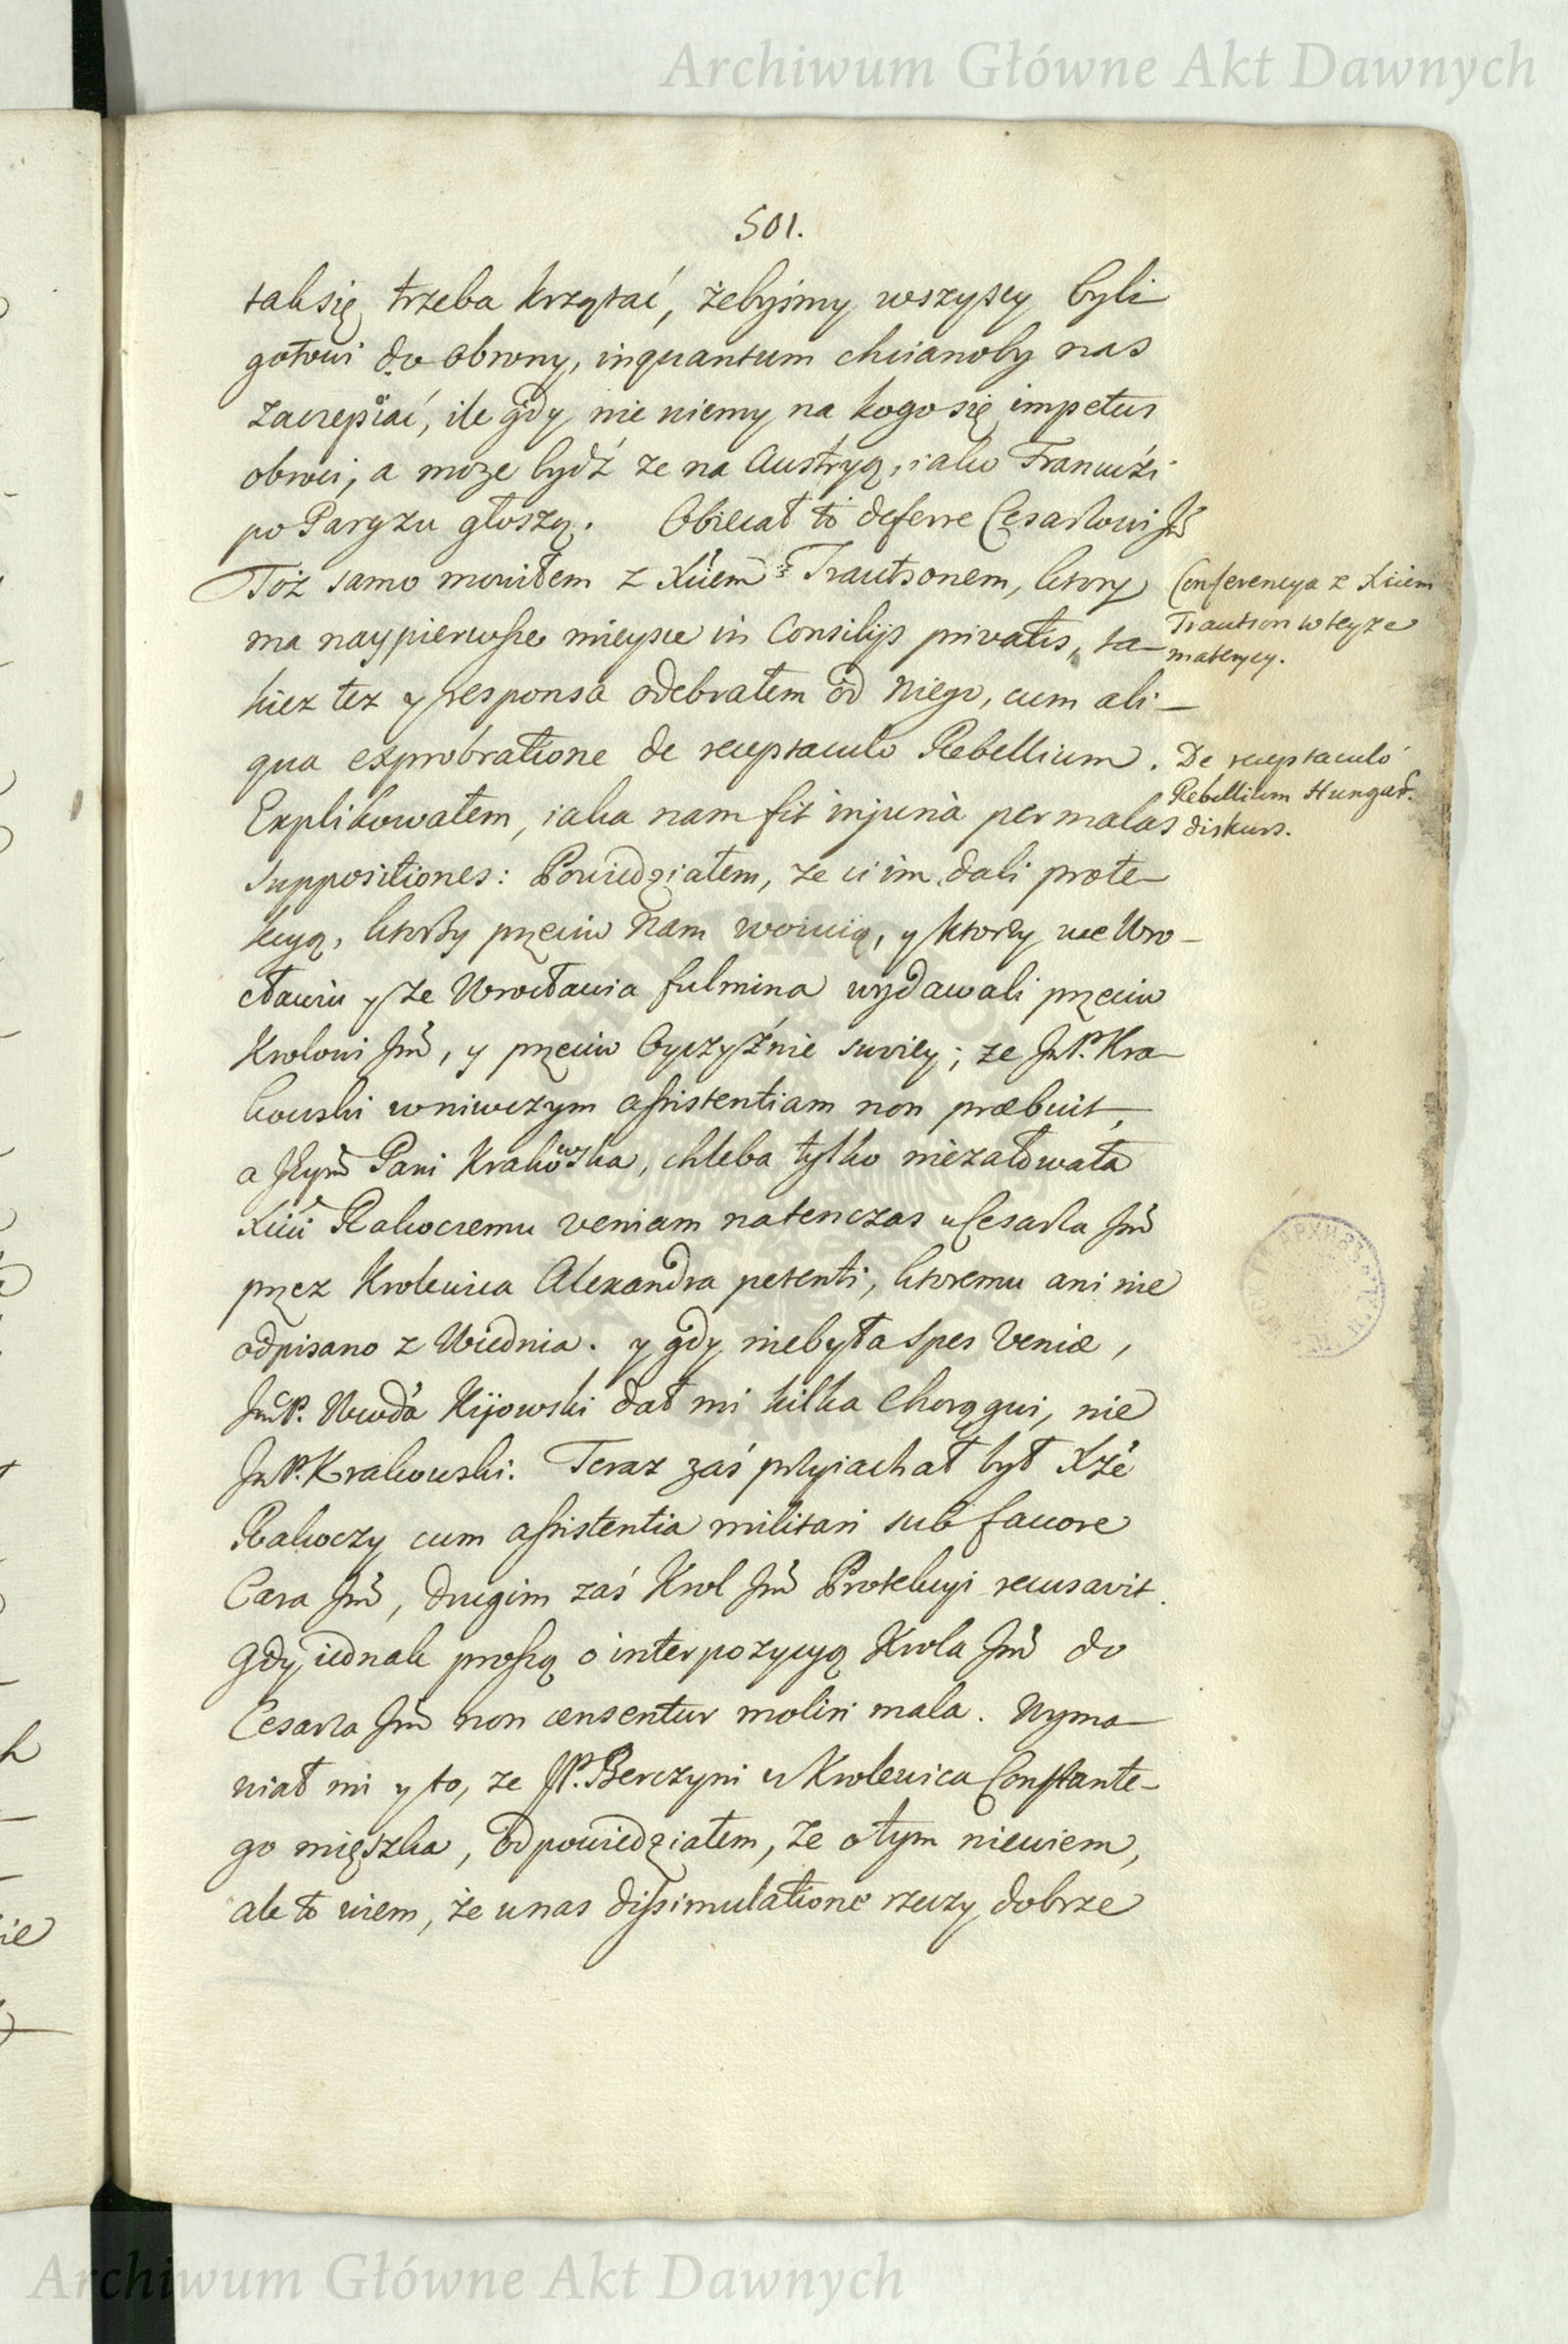 Archiwum Główne Akt Dawnych
501.
tak się trzeba krzątać, żebyśmy wszyscy byli
gotowi do obrony, inquantum chcianoby nas
zaczepiać, ile gdy nie wiemy na kogo się impetus
obroci, a może bydź ze na Austryą, iako Francuźi
po Paryzu głoszą. Obiecał to deferre Cesarzowi Jmć
Toż samo mowiłem z Xciem Trautsonem, ktory
ma naypierwsze mieysce in Consilijs privatis, ta-
kiez tez y responsa odebrałem od niego, cum ali-
qua exprobratione de receptaculo Rebellium.
Explikowałem, iaka nam fit injuria per malas
suppositiones: Powiedziałem, ze ci im dali prote-
kcyą, ktorzy przeciw nam woiuią, y ktorzy we Wro-
cławiu y ze Wrocławia fulmina wydawali przeciw
Krolowi Jmć, y przeciw Oyczyźnie swoiey; ze Jm P. Kra-
kowski wniwczym assistentiam non præbuit,
a Jeymć Pani Krakowska, chleba tylko nieżałowała
Xciu Rakoczemu veniam natenczas u Cesarza Jmć
przez Krolewica Alexandra petenti, ktoremu ani nie
odpisano z Wiednia. y gdy niebyła spes veniæ,
Jmć P. Wwda Kijowski dał mi kilka Chorągwi, nie
Jm P. Krakowski. Teraz zaś przyiachał był Xże
Rakoczy cum assistentia militari sub favore
Cara Jmć, drugim zaś Krol Jmć Protekcyi recusavit.
Gdy iednak proszą o interpozycyą Krola Jmć do
Cesarza Jmć non censentur moliri mala. Wyma-
wiał mi y to, ze JP. Berczyni u Krolewica Constante-
go mięszka, odpowiedziałem, ze o tym niewiem,
ale to wiem, że u nas dissimulatione rzeczy dobrze
Conferencya z Xciem
Trautson w teyze
materyey.
De receptaculo
Rebellium Hungar.
diskurs.
Archiwum Główne Akt Dawnych